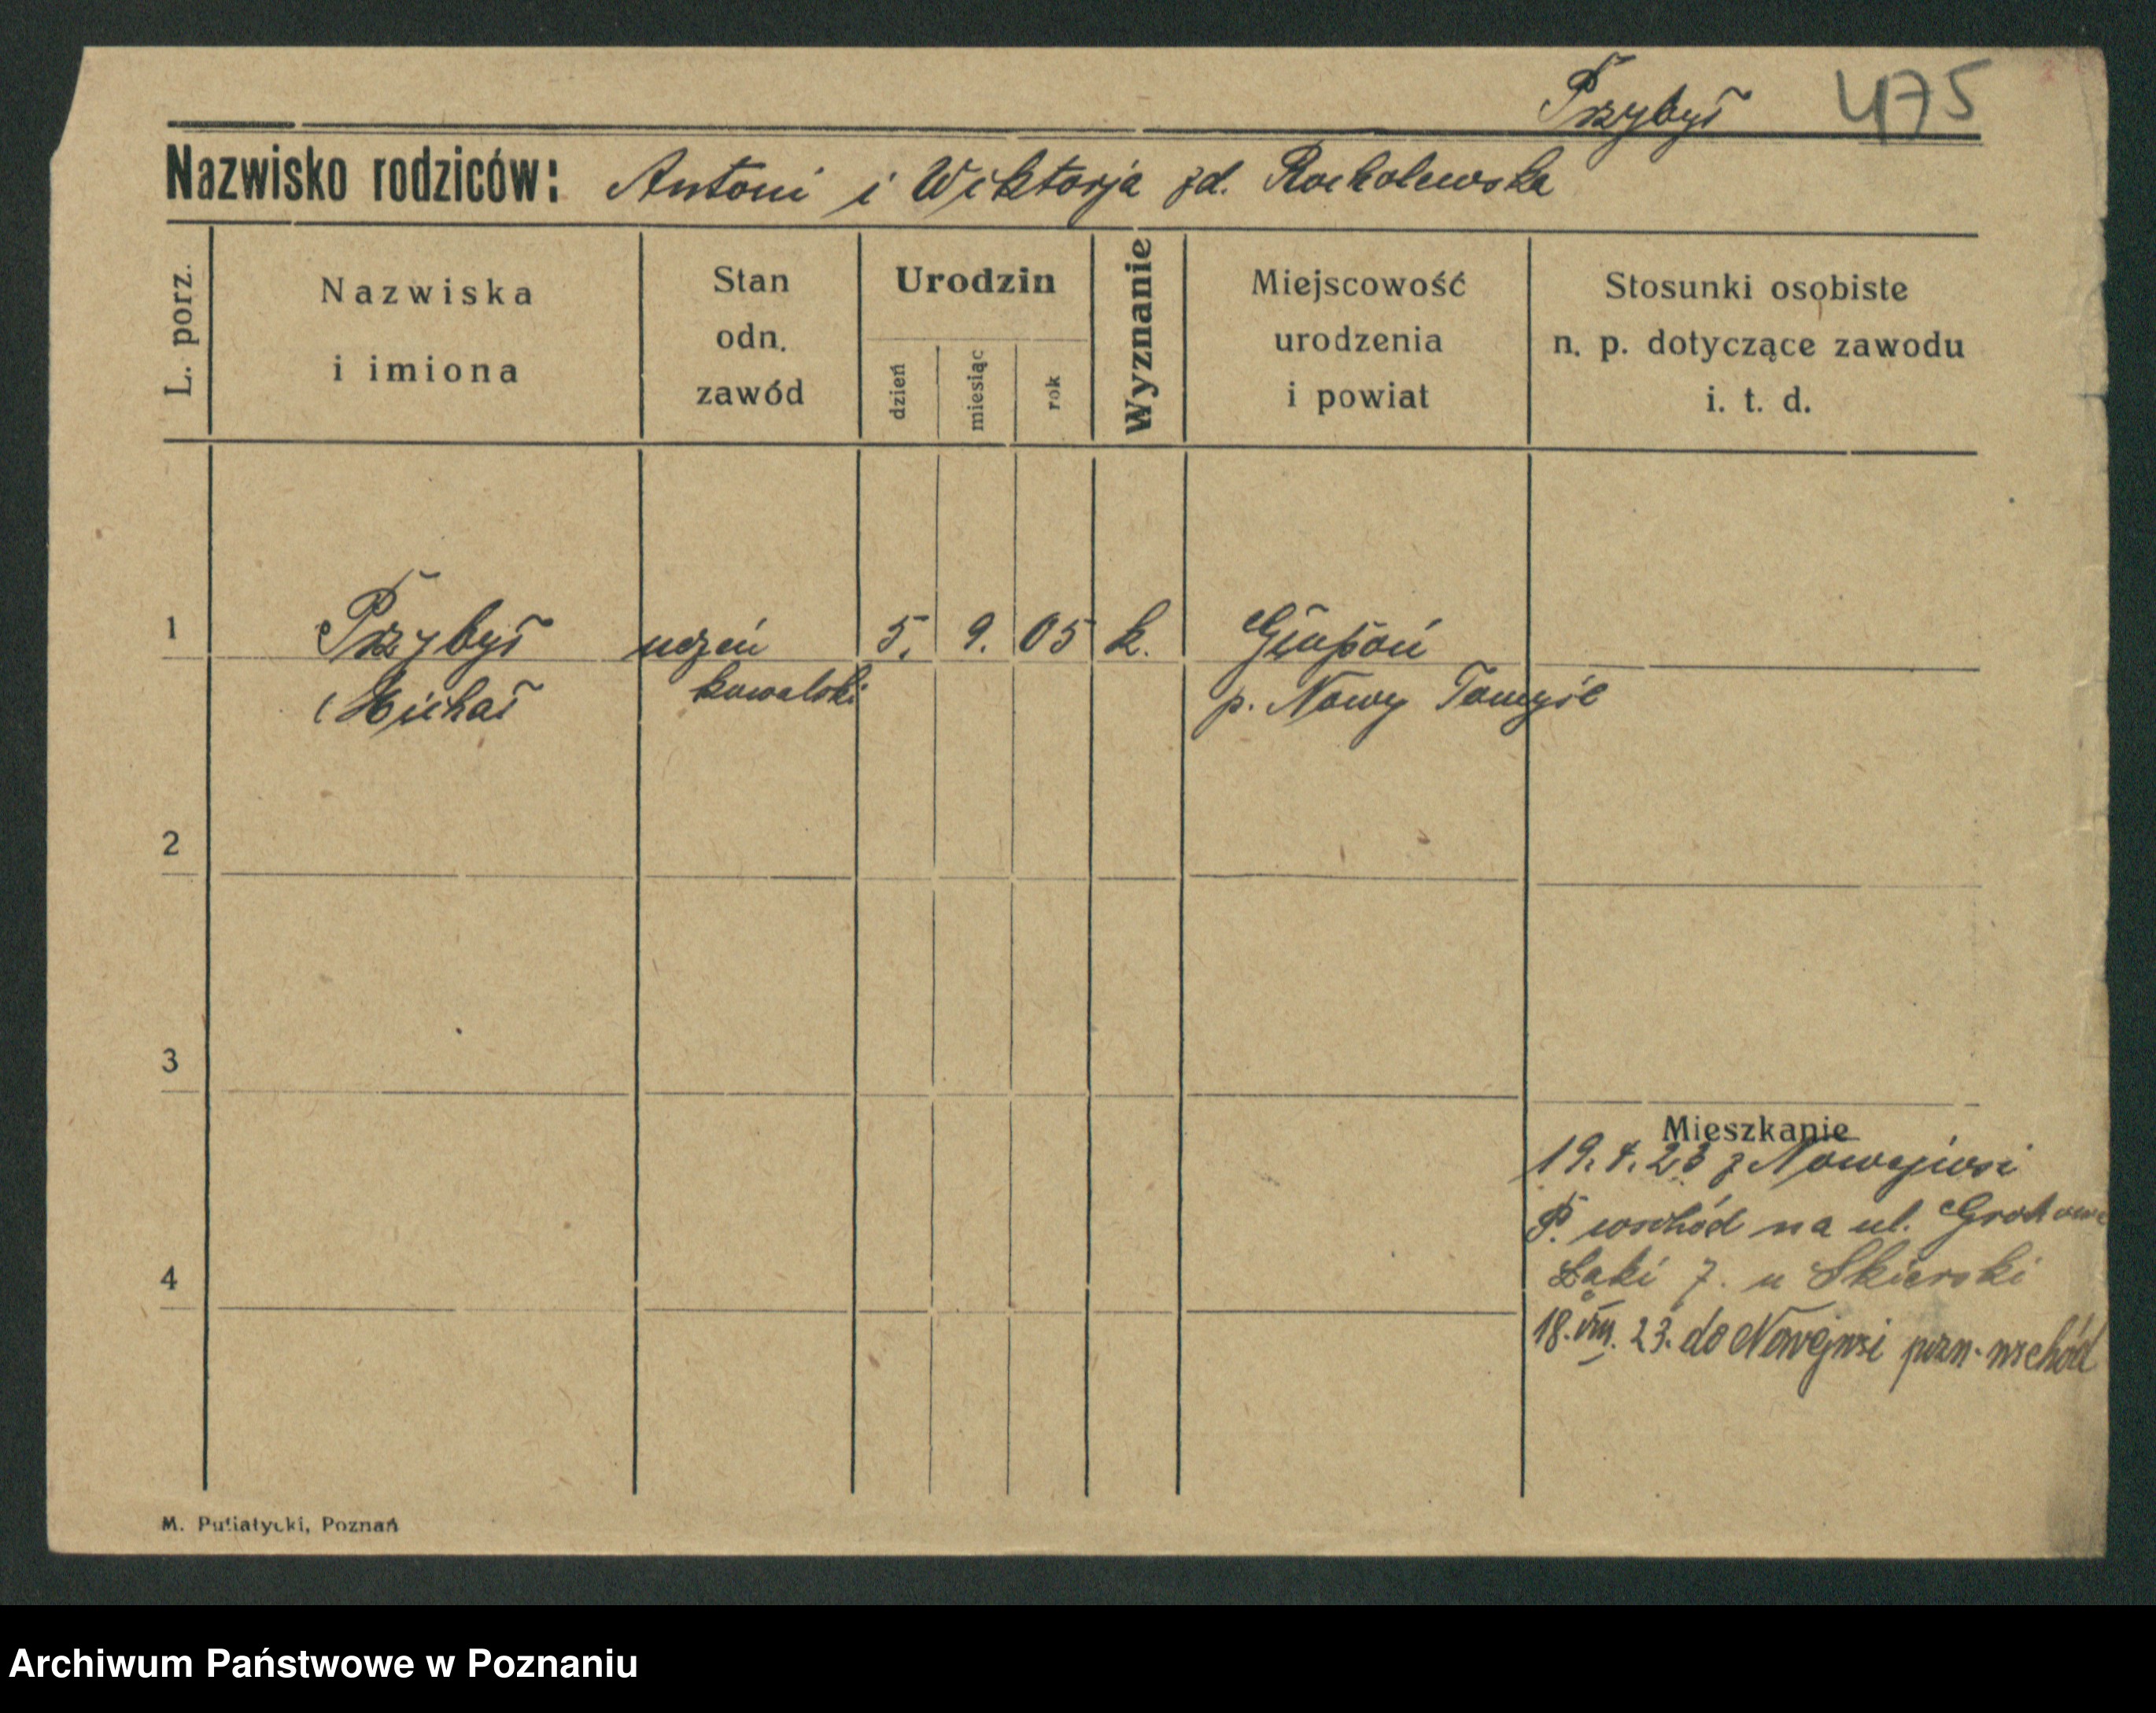 Przybył 475
Nazwisko rodziców: Antoni i Wiktorja zd. Rocholewska
L. porz.
Nazwiska
i imiona
Stan
odn.
zawód
Urodzin
dzień
miesiąc
rok
Wyznanie
Miejscowość
urodzenia
i powiat
Stosunki osobiste
n. p. dotyczące zawodu
i. t. d.
1 Przybył uczeń 5. 9. 05 k. Głupoń
Michał kowalski p. Nowy Tomyśl
2
3
Mieszkanie
19. 4. 23 z Nowejwsi
P. wschód na ul. Grochowe
4 Łąki 7. u Skierski
18. VIII. 23. do Nowejwsi pozn. wschód
M. Putiatycki, Poznań
Archiwum Państwowe w Poznaniu